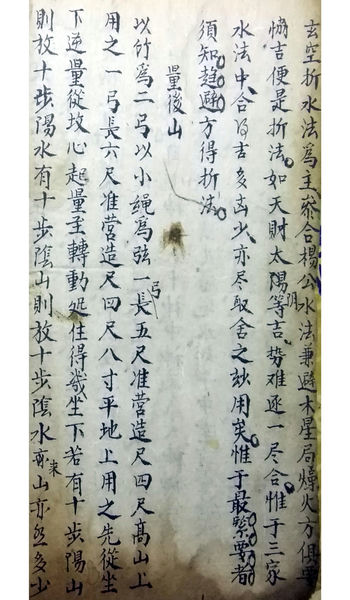 玄空折水法為主叅合楊公水法兼避木星局燥火方俱要
恊吉便是折法如天財太陽阴等吉势难逐一尽合惟于三家
水法中合得吉多凶少亦尽取舍之玅用矣惟于最緊要者
須知趋避方得折法
量後山
以竹為二弓以小绳為弦一弓長五尺准营造尺四尺高山上
用之一弓長六尺准营造尺四尺八寸平地上用之先從坐
下逆量從坟心起量至轉動処住得幾坐下若有十步陽山
則放十步陽水有十步陰山則放十步陰水来亦亦然多少